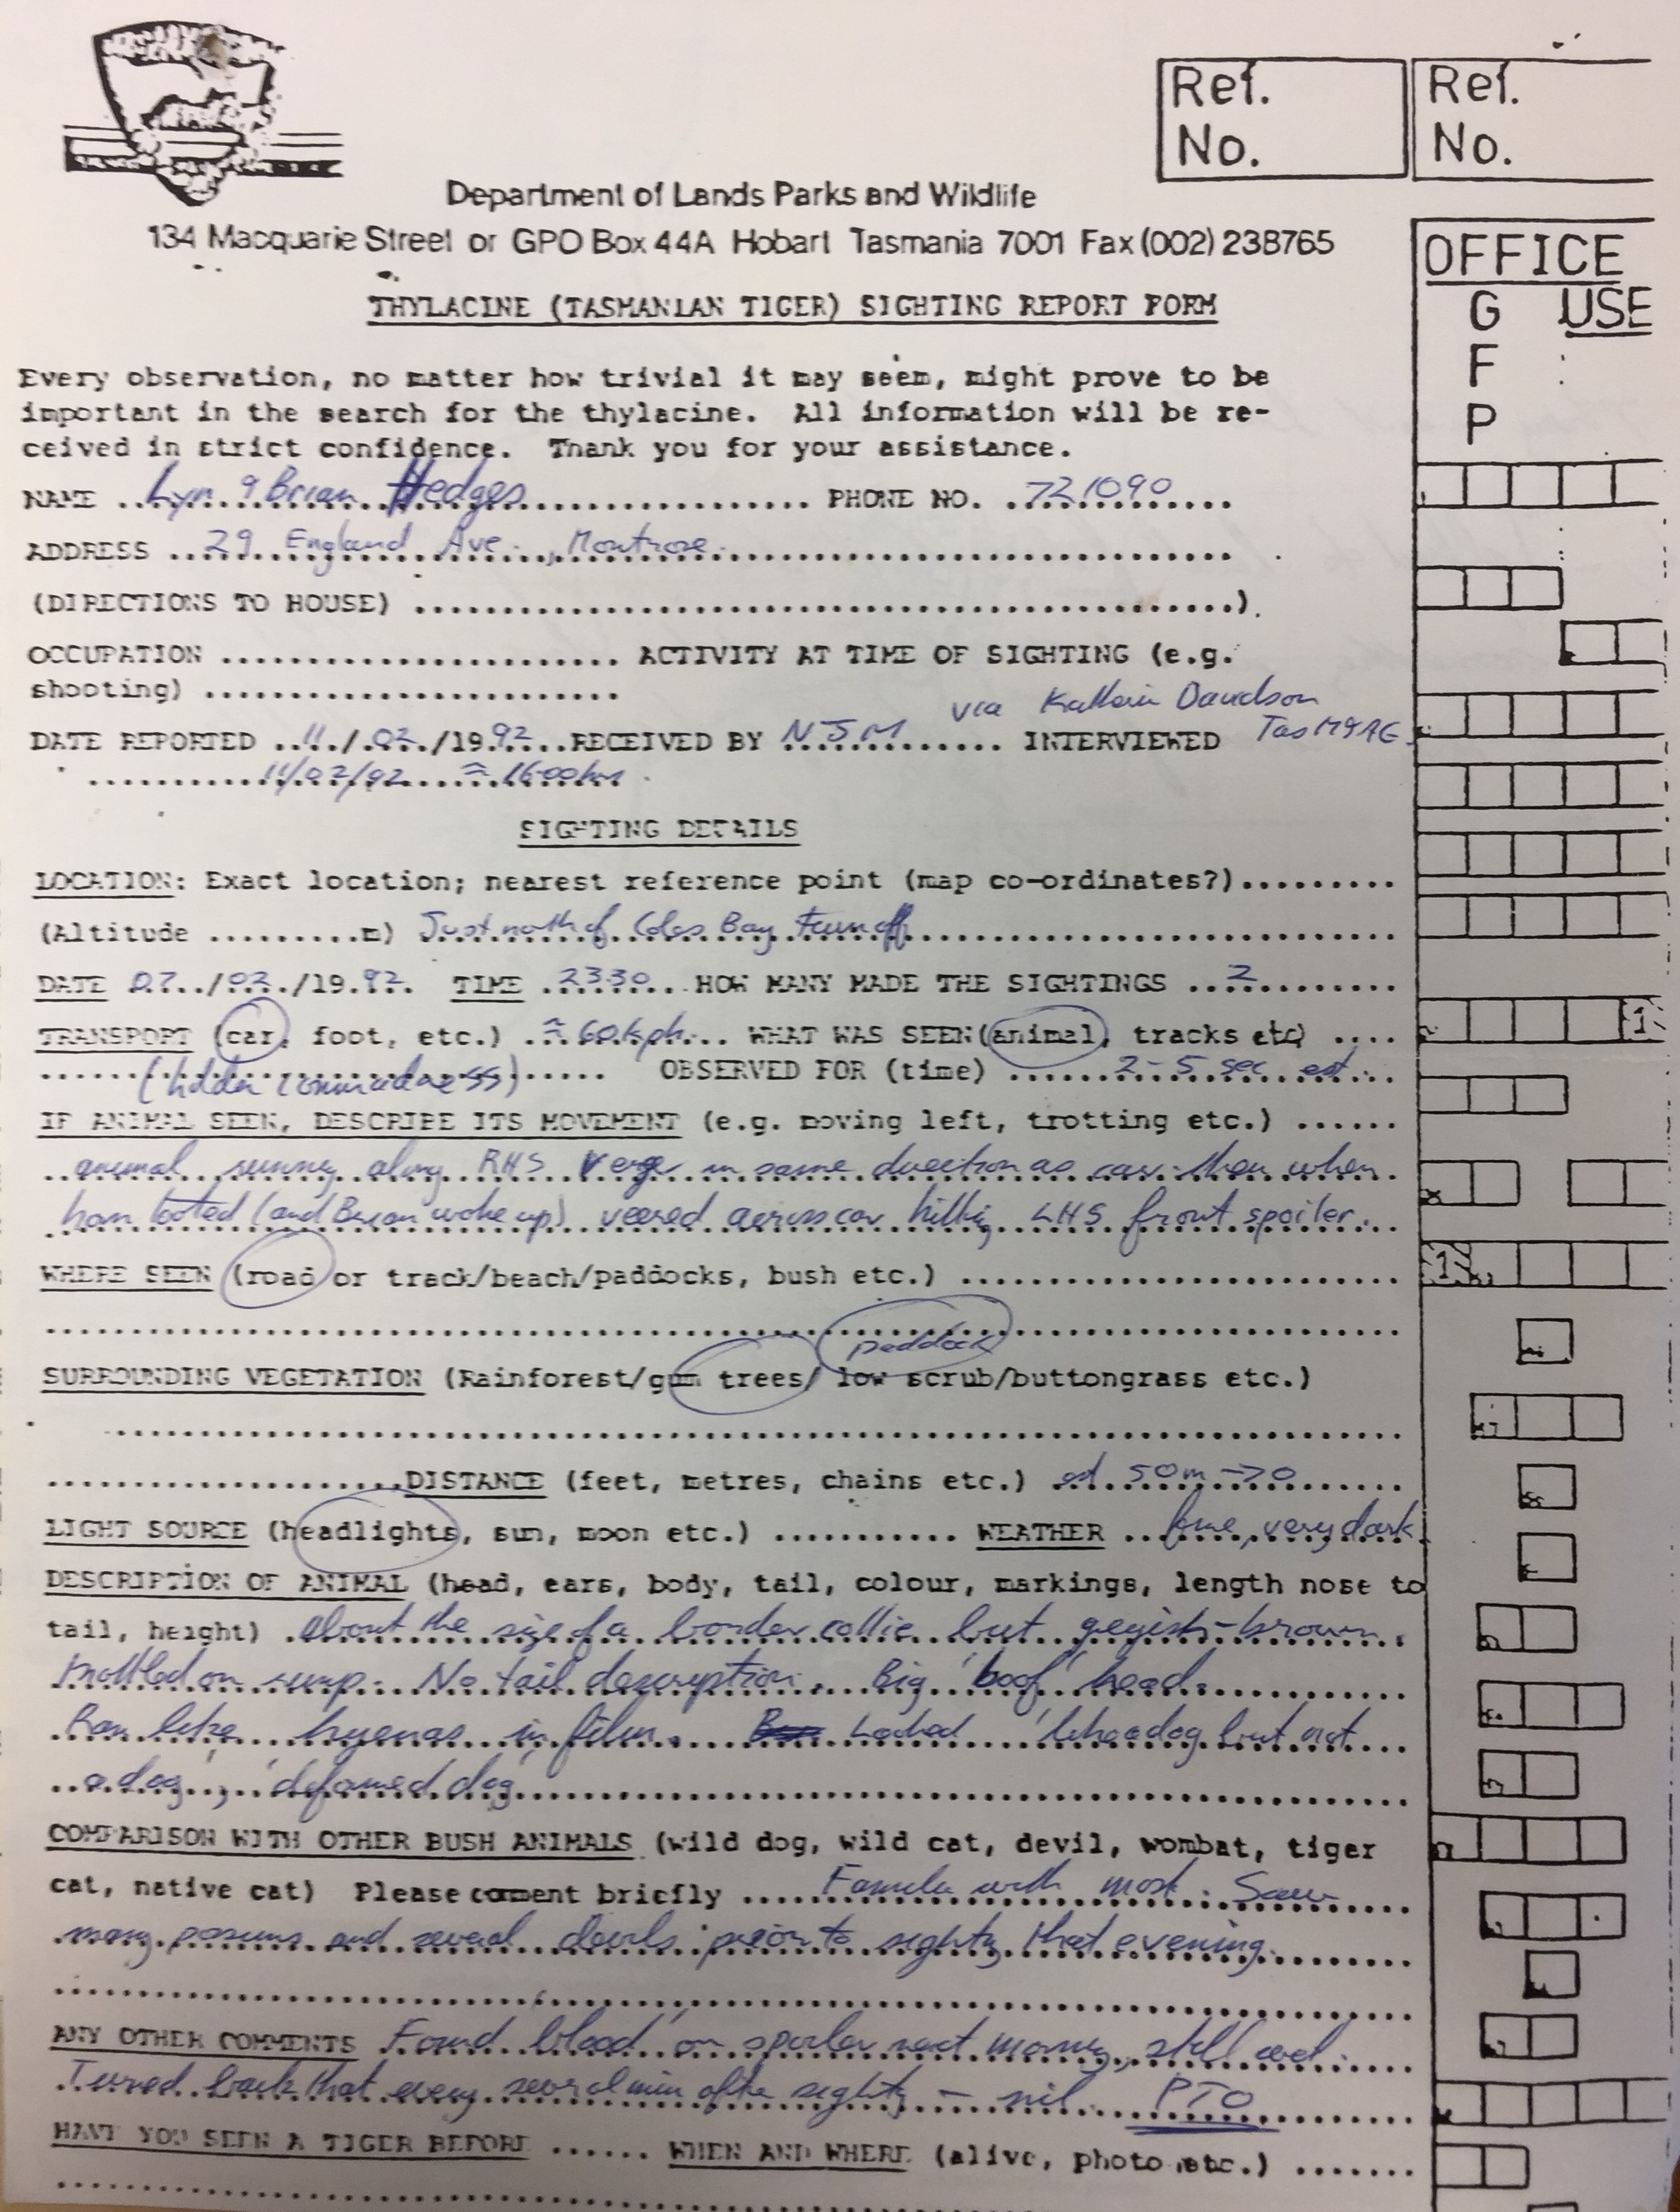 Ref. No.
Ref. No.
Department of Lands Parks and Wildlife
134 Macquarie Street or GPO Box 44A Hobart Tasmania 7001 Fax (002) 238765
OFFICE USE
G
F
P
THYLACINE (TASMANIAN TIGER) SIGHTING REPORT FORM
Every observation, no matter how trivial it may seem, might prove to be
important in the search for the thylacine. All information will be re-
ceived in strict confidence. Thank you for your assistance.
NAME .. Lyn & Brian Hedges ........ PHONE NO. .721090....
ADDRESS ...29 England Ave., Montrose........
(DIRECTIONS TO HOUSE) ........).
OCCUPATION ........ ACTIVITY AT TIME OF SIGHTING (e.g.
shooting) ........
via Kathrin Davidson
DATE REPORTED ..11./.02./19.92...RECEIVED BY NJM ........ INTERVIEWED TasM&AG
........11/02/92....≈.1600hrs.
SIGHTING DETAILS
LOCATION: Exact location; nearest reference point (map co-ordinates?)........
(Altitude ........m) Just north of Coles Bay Turn off........
DATE 07../.02./19.92. TIME .2330... HOW MANY MADE THE SIGHTINGS ...2........
TRANSPORT (car, foot, etc.) .≈.60kph... WHAT WAS SEEN(animal, tracks etc) ....
(holden commodore SS)..... OBSERVED FOR (time) ........2-5 sec est...
IF ANIMAL SEEN, DESCRIBE ITS MOVEMENT (e.g. moving left, trotting etc.) ......
animal running along RHS verge in same direction as car. then when
horn tooted (and Brian woke up) veered across car hitting LHS front spoiler...
WHERE SEEN (road or track/beach/paddocks, bush etc.) ........
paddock
SURROUNDING VEGETATION (Rainforest/gum trees/ low scrub/buttongrass etc.)
........DISTANCE (feet, metres, chains etc.) est. 50m->0........
LIGHT SOURCE (headlights, sun, moon etc.) ........ WEATHER ...fine, very dark
DESCRIPTION OF ANIMAL (head, ears, body, tail, colour, markings, length nose to
tail, height) .about the size of a border collie but greyish-brown..
Mottled on rump. No tail description. Big 'boof' head.
Ran like hyenas in film. Looked 'like a dog but not
a dog', 'deformed dog'
COMPARISON WITH OTHER BUSH ANIMALS (wild dog, wild cat, devil, wombat, tiger
cat, native cat) Please comment briefly ....Familiar with most. Saw
many possums and several devils prior to sighting that evening.
ANY OTHER COMMENTS Found 'blood' on spoiler next morning, still wet.
Turned back that evening several min after sighting - nil. PTO
HAVE YOU SEEN A TIGER BEFORE ...... WHEN AND WHERE (alive, photo etc.) .......